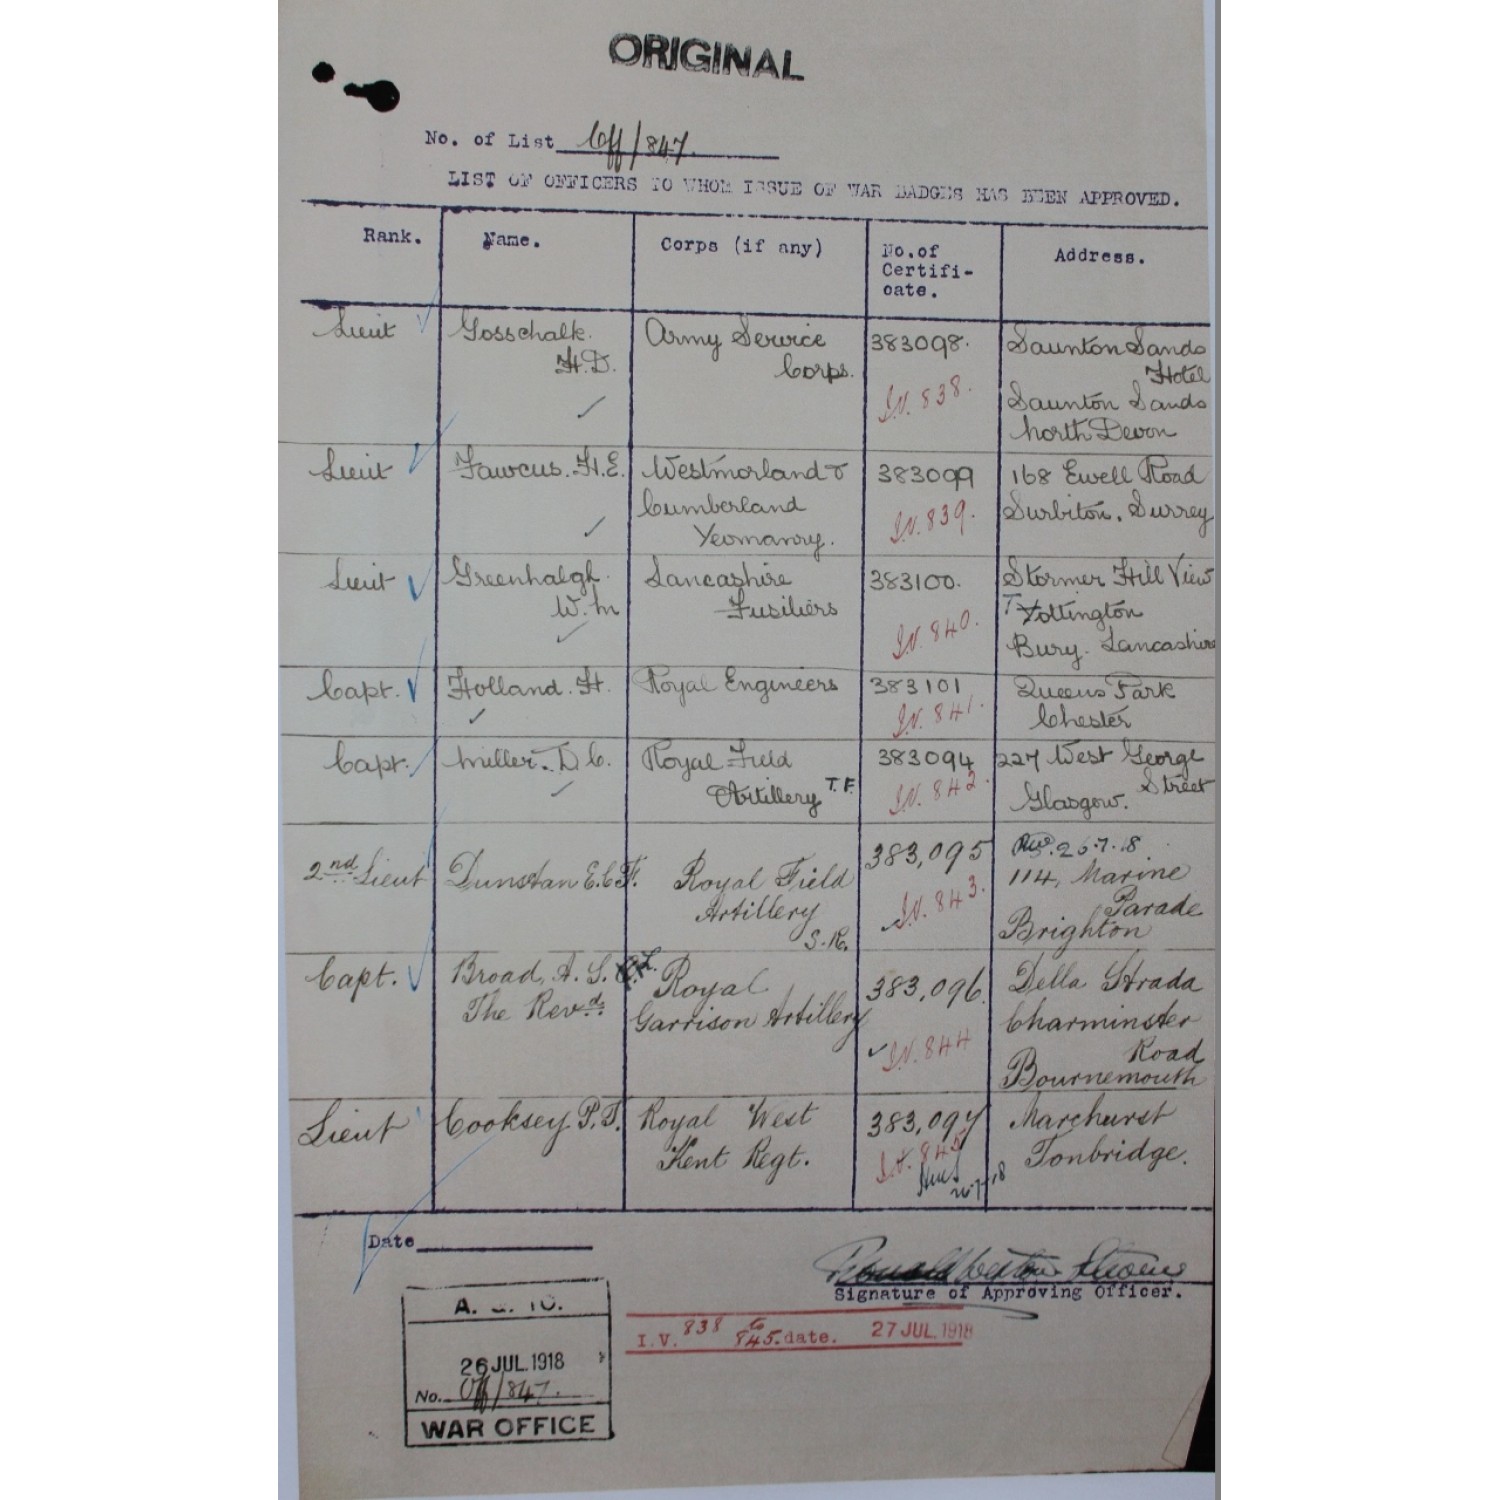 ORIGINAL
No. of List Off/847.
LIST OF OFFICERS TO WHOM ISSUE OF WAR BADGES HAS BEEN APPROVED.
Rank. Name. Corps (if any) No.of Certifi- cate. Address.
Lieut Gosschalk. Army Service 383098. Saunton Sands
H.D. Corps. Hotel
I.V. 838. Saunton Sands
North Devon
Lieut Fawcus. H.E. Westmorland & 383099 168 Ewell Road
Cumberland I.V. 839. Surbiton. Surrey
Yeomanry.
Lieut Greenhalgh. Lancashire 383100. Stormer Hill View
W. M Fusiliers Tottington
I.V. 840. Bury. Lancashire
Capt. Holland. H. Royal Engineers 383101 Queens Park
I.V. 841. Chester
Capt. Miller. D C. Royal Field 383094 227 West George
Artillery T.F. I.V. 842. Street
Glasgow.
26.7.18
2nd Lieut Dunstan E.C.F. Royal Field 383,095 114, Marine
Artillery I.V. 843. Parade
S.R. Brighton
Capt. Broad, A. S. Royal 383,096. Della Strada
The Revd. Garrison Artillery Charminster
I.V. 844 Road
Bournemouth
Lieut Cooksey. P.T. Royal West 383,097 Marchurst
Kent Regt. I.V. 845 Tonbridge.
Date
Signature of Approving Officer.
I.V. 838 to 845. date. 27 JUL 1918
26 JUL. 1918
No. Off/847.
WAR OFFICE